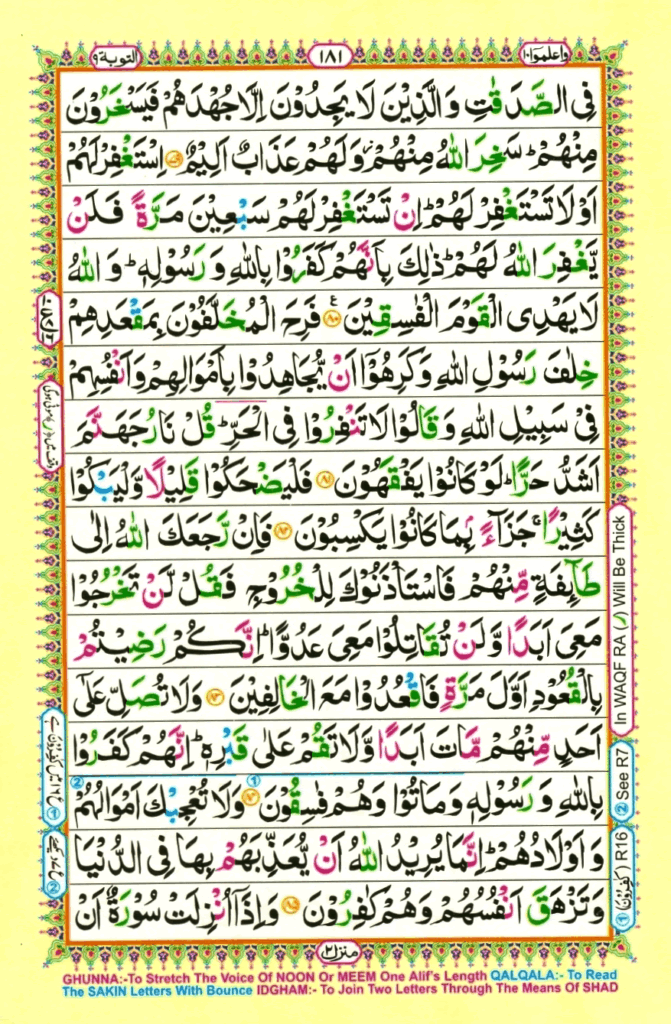 واعلموا ١٠
١٨١
التوبة ٩
فِى الصَّدَقٰتِ وَالَّذِيْنَ لَا يَجِدُوْنَ اِلَّا جُهْدَهُمْ فَيَسْخَرُوْنَ
مِنْهُمْ ؕ سَخِرَ اللّٰهُ مِنْهُمْ ؗ وَلَهُمْ عَذَابٌ اَلِيْمٌ ﴿۷۹﴾ اِسْتَغْفِرْ لَهُمْ
اَوْ لَا تَسْتَغْفِرْ لَهُمْ ؕ اِنْ تَسْتَغْفِرْ لَهُمْ سَبْعِيْنَ مَرَّةً فَلَنْ
يَّغْفِرَ اللّٰهُ لَهُمْ ؕ ذٰلِكَ بِاَنَّهُمْ كَفَرُوْا بِاللّٰهِ وَرَسُوْلِهٖ ؕ وَاللّٰهُ
لَا يَهْدِى الْقَوْمَ الْفٰسِقِيْنَ ﴿۸۰﴾ فَرِحَ الْمُخَلَّفُوْنَ بِمَقْعَدِهِمْ
خِلٰفَ رَسُوْلِ اللّٰهِ وَكَرِهُوْۤا اَنْ يُّجَاهِدُوْا بِاَمْوَالِهِمْ وَاَنْفُسِهِمْ
فِىْ سَبِيْلِ اللّٰهِ وَقَالُوْا لَا تَنْفِرُوْا فِى الْحَرِّ ؕ قُلْ نَارُ جَهَنَّمَ
اَشَدُّ حَرًّا ؕ لَوْ كَانُوْا يَفْقَهُوْنَ ﴿۸۱﴾ فَلْيَضْحَكُوْا قَلِيْلًا وَّلْيَبْكُوْا
كَثِيْرًا ۚ جَزَآءًۢ بِمَا كَانُوْا يَكْسِبُوْنَ ﴿۸۲﴾ فَاِنْ رَّجَعَكَ اللّٰهُ اِلٰى
طَآئِفَةٍ مِّنْهُمْ فَاسْتَاْذَنُوْكَ لِلْخُرُوْجِ فَقُلْ لَّنْ تَخْرُجُوْا
مَعِىَ اَبَدًا وَّلَنْ تُقَاتِلُوْا مَعِىَ عَدُوًّا ؕ اِنَّكُمْ رَضِيْتُمْ
بِالْقُعُوْدِ اَوَّلَ مَرَّةٍ فَاقْعُدُوْا مَعَ الْخَالِفِيْنَ ﴿۸۳﴾ وَلَا تُصَلِّ عَلٰٓى
اَحَدٍ مِّنْهُمْ مَّاتَ اَبَدًا وَّلَا تَقُمْ عَلٰى قَبْرِهٖ ؕ اِنَّهُمْ كَفَرُوْا
بِاللّٰهِ وَرَسُوْلِهٖ وَمَاتُوْا وَهُمْ فٰسِقُوْنَ ﴿۸۴﴾ وَلَا تُعْجِبْكَ اَمْوَالُهُمْ
وَاَوْلَادُهُمْ ؕ اِنَّمَا يُرِيْدُ اللّٰهُ اَنْ يُّعَذِّبَهُمْ بِهَا فِى الدُّنْيَا
وَتَزْهَقَ اَنْفُسُهُمْ وَهُمْ كٰفِرُوْنَ ﴿۸۵﴾ وَاِذَاۤ اُنْزِلَتْ سُوْرَةٌ اَنْ
In WAQF RA (ر) Will Be Thick
② See R7
① (كٰفِرُوْنَ) R16
منزل ٢
GHUNNA:-To Stretch The Voice Of NOON Or MEEM One Alif's Length QALQALA:- To Read
The SAKIN Letters With Bounce IDGHAM:- To Join Two Letters Through The Means Of SHAD